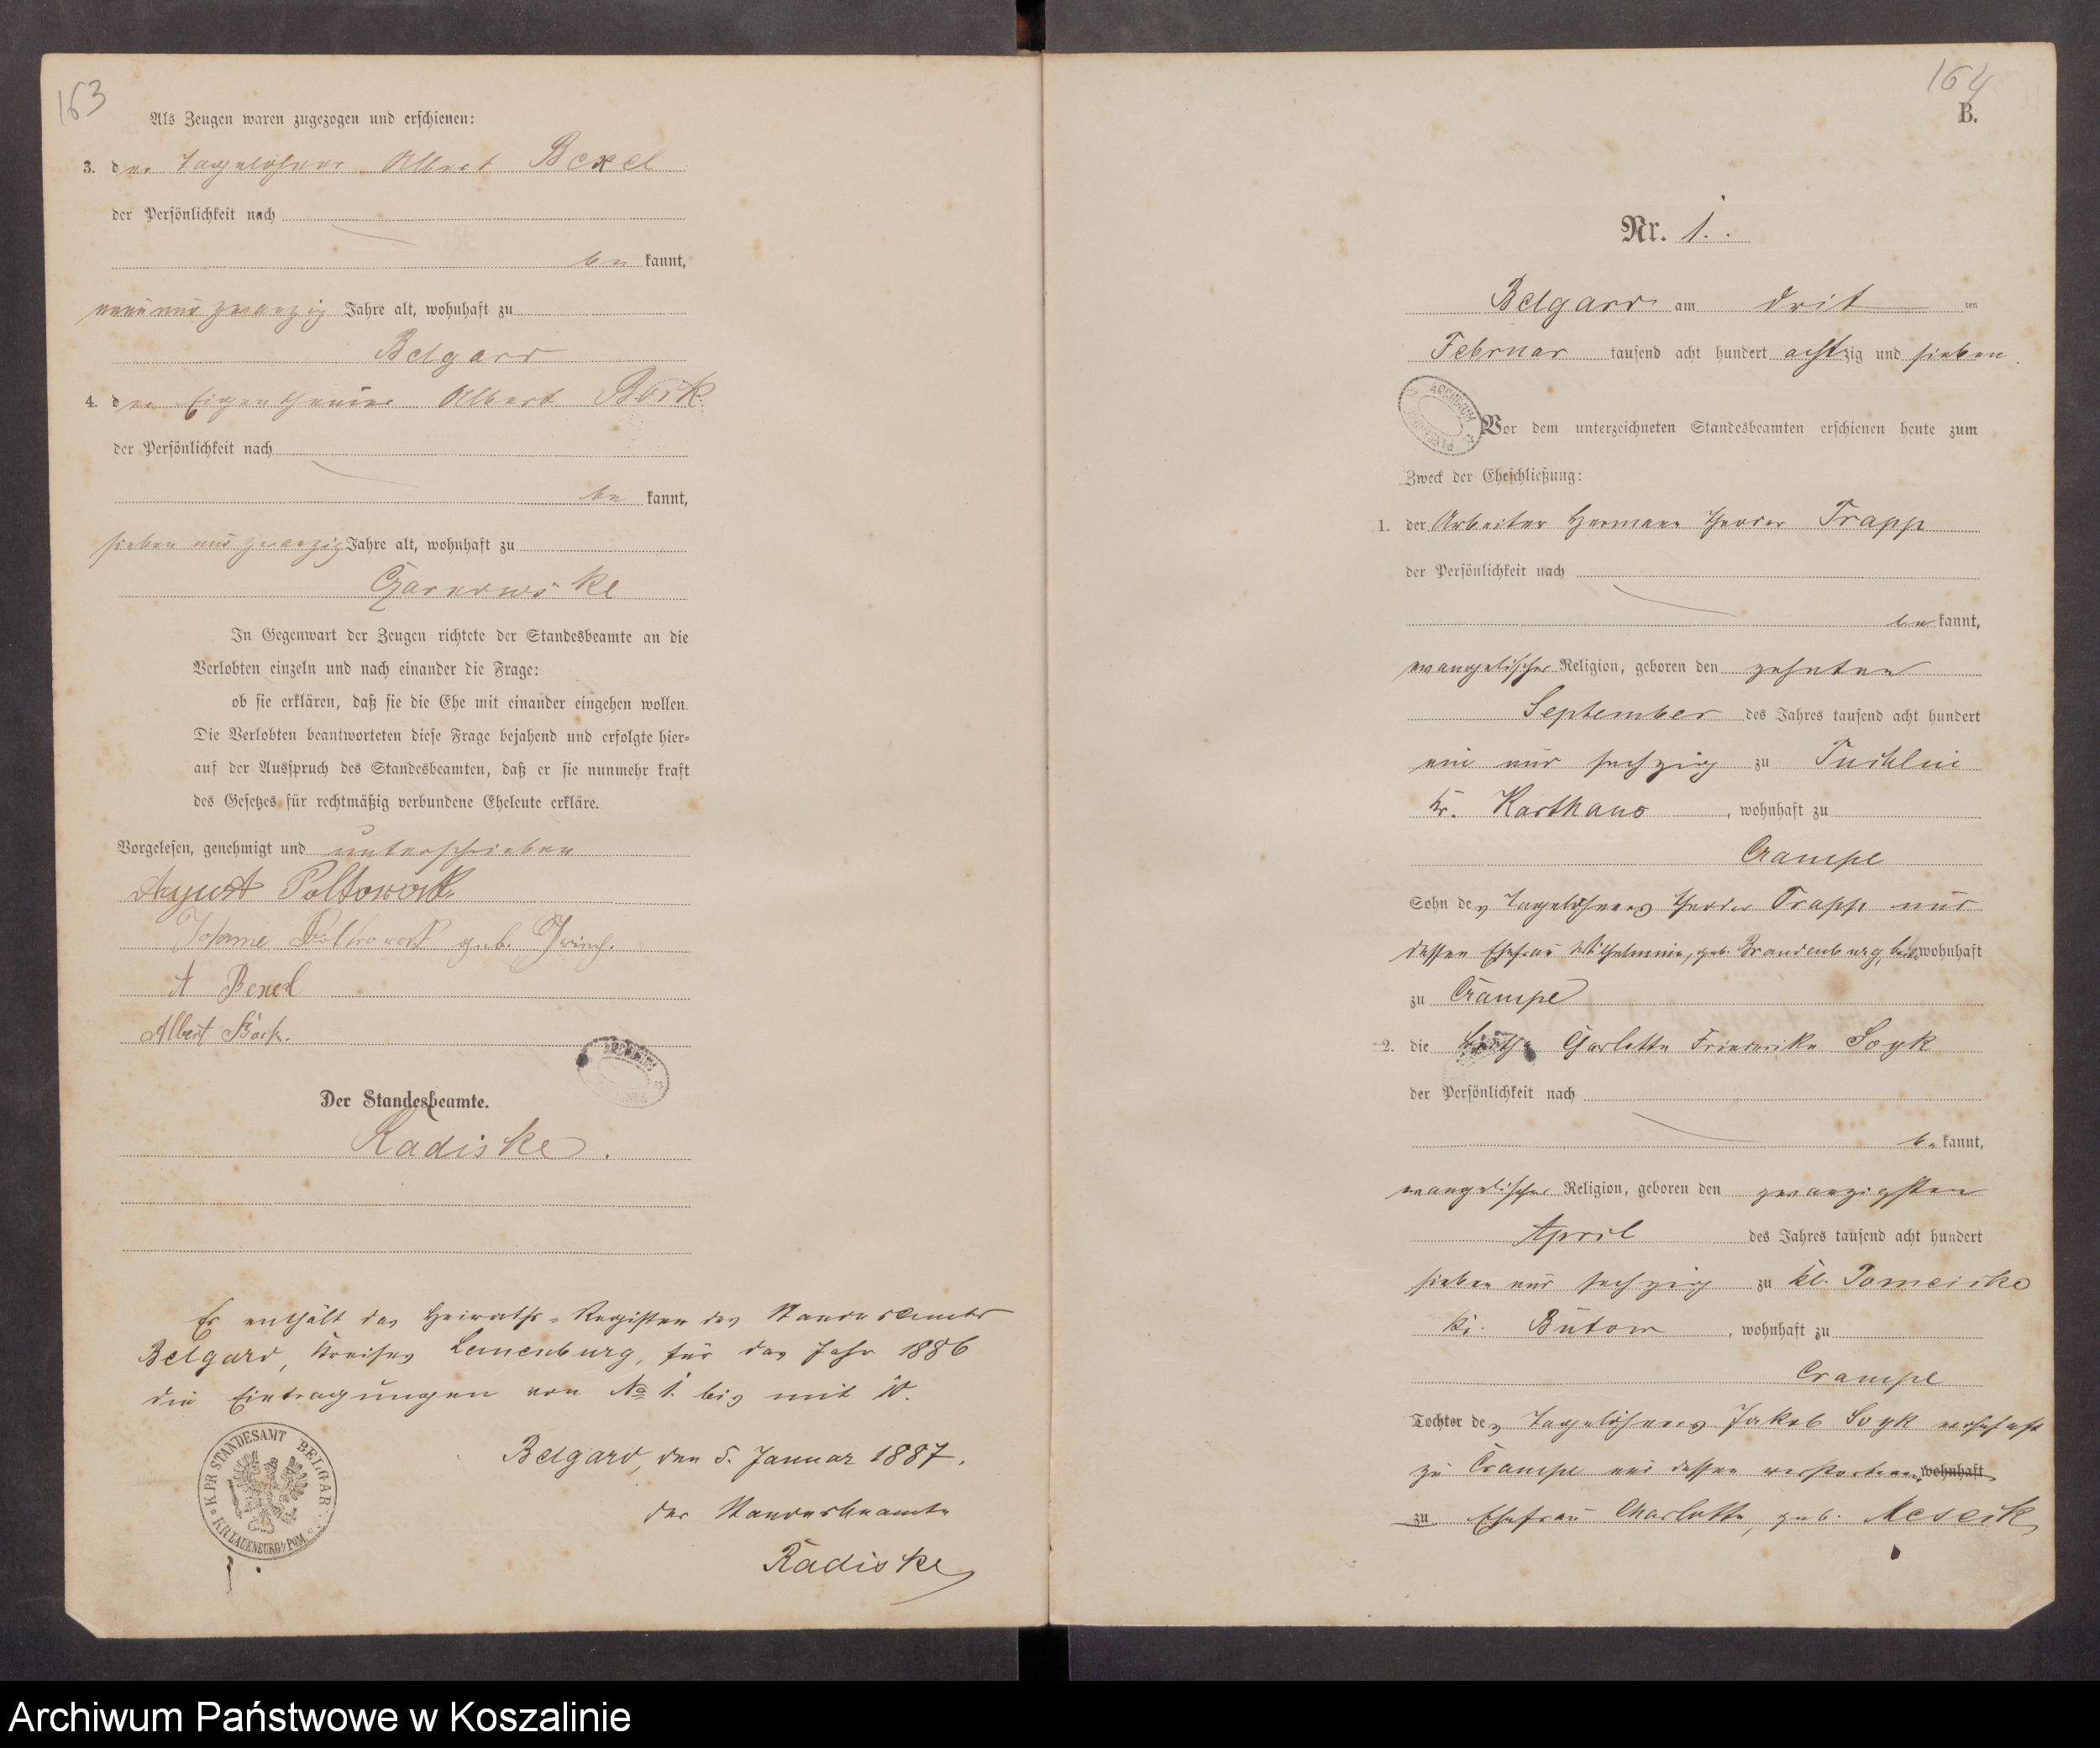 163
Als Zeugen waren zugezogen und erschienen:
3. der Tagelöhner Albert Bexel
der Persönlichkeit nach
be kannt,
neun und zwanzig Jahre alt, wohnhaft zu
Belgard
4. der Eigenthümer Albert Bork
der Persönlichkeit nach
be kannt,
sieben und zwanzig Jahre alt, wohnhaft zu
Czarnowske
In Gegenwart der Zeugen richtete der Standesbeamte an die
Verlobten einzeln und nach einander die Frage:
ob sie erklären, daß sie die Ehe mit einander eingehen wollen.
Die Verlobten beantworteten diese Frage bejahend und erfolgte hier-
auf der Ausspruch des Standesbeamten, daß er sie nunmehr kraft
des Gesetzes für rechtmäßig verbundene Eheleute erkläre.
Vorgelesen, genehmigt und unterschrieben
August
geb.
A Bexel
Albert Bork.
Der Standesbeamte.
Radiske.
Es enthält das Heiraths-Register des Standesamts
Belgard, Kreises Lauenburg, für das Jahr 1886
die Eintragungen von No 1. bis mit 10.
KPR STANDESAMT BELGARD
KR LAUENBURG I/ POM.
Belgard, den 5. Januar 1887.
der Standesbeamte
Radiske
164
B.
Nr. 1.
Belgard am drit ten
Februar tausend acht hundert achtzig und sieben.
ARCHIWUM
Vor dem unterzeichneten Standesbeamten erschienen heute zum
Zweck der Eheschließung:
1. der Arbeiter Hermann Theodor Trapp
der Persönlichkeit nach
be kannt,
evangelischer Religion, geboren den zehnten
September des Jahres tausend acht hundert
ein und sechzig zu
Kr. Karthaus, wohnhaft zu
Crampe
Sohn des Tagelöhners Theodor Trapp und
dessen Ehefrau Wilhelmine, geb. Brandenburg, wohnhaft
zu Crampe
2. die Charlotte Friederike Soyk
der Persönlichkeit nach
be kannt,
evangelischer Religion, geboren den zwanzigsten
April des Jahres tausend acht hundert
sieben und sechzig zu Kl. Pomeiske
Kr. Bütow, wohnhaft zu
Crampe
Tochter des Tagelöhners Jakob Soyk wohnhaft
zu Crampe und dessen verstorbenen wohnhaft
zu Ehefrau Charlotte, geb.
Archiwum Państwowe w Koszalinie